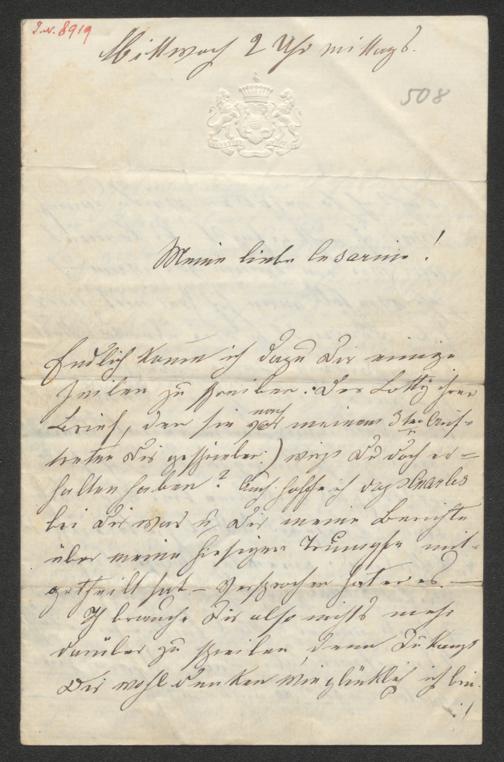 J.N. 8919
Mittwoch 2 Uhr mittags.
508
Meine liebe Cesarine!
Endlich komm ich dazu Dir einige
Zeilen zu schreiben. Der Lotty ihren
Brief, den sie nach meinem 3ten Auf-
treten Dir geschrieben) wirst Du doch er-
halten haben? Auch hoffe ich daß Charles
bei Dir war u. Dir meine Berichte
über meine hiesigen Triumpfe mit-
getheilt hat – versprochen hat er es. –
Ich brauche Dir also nichts mehr
darüber zu schreiben, denn Du kannst
Dir wohl denken wie glücklich ich bin